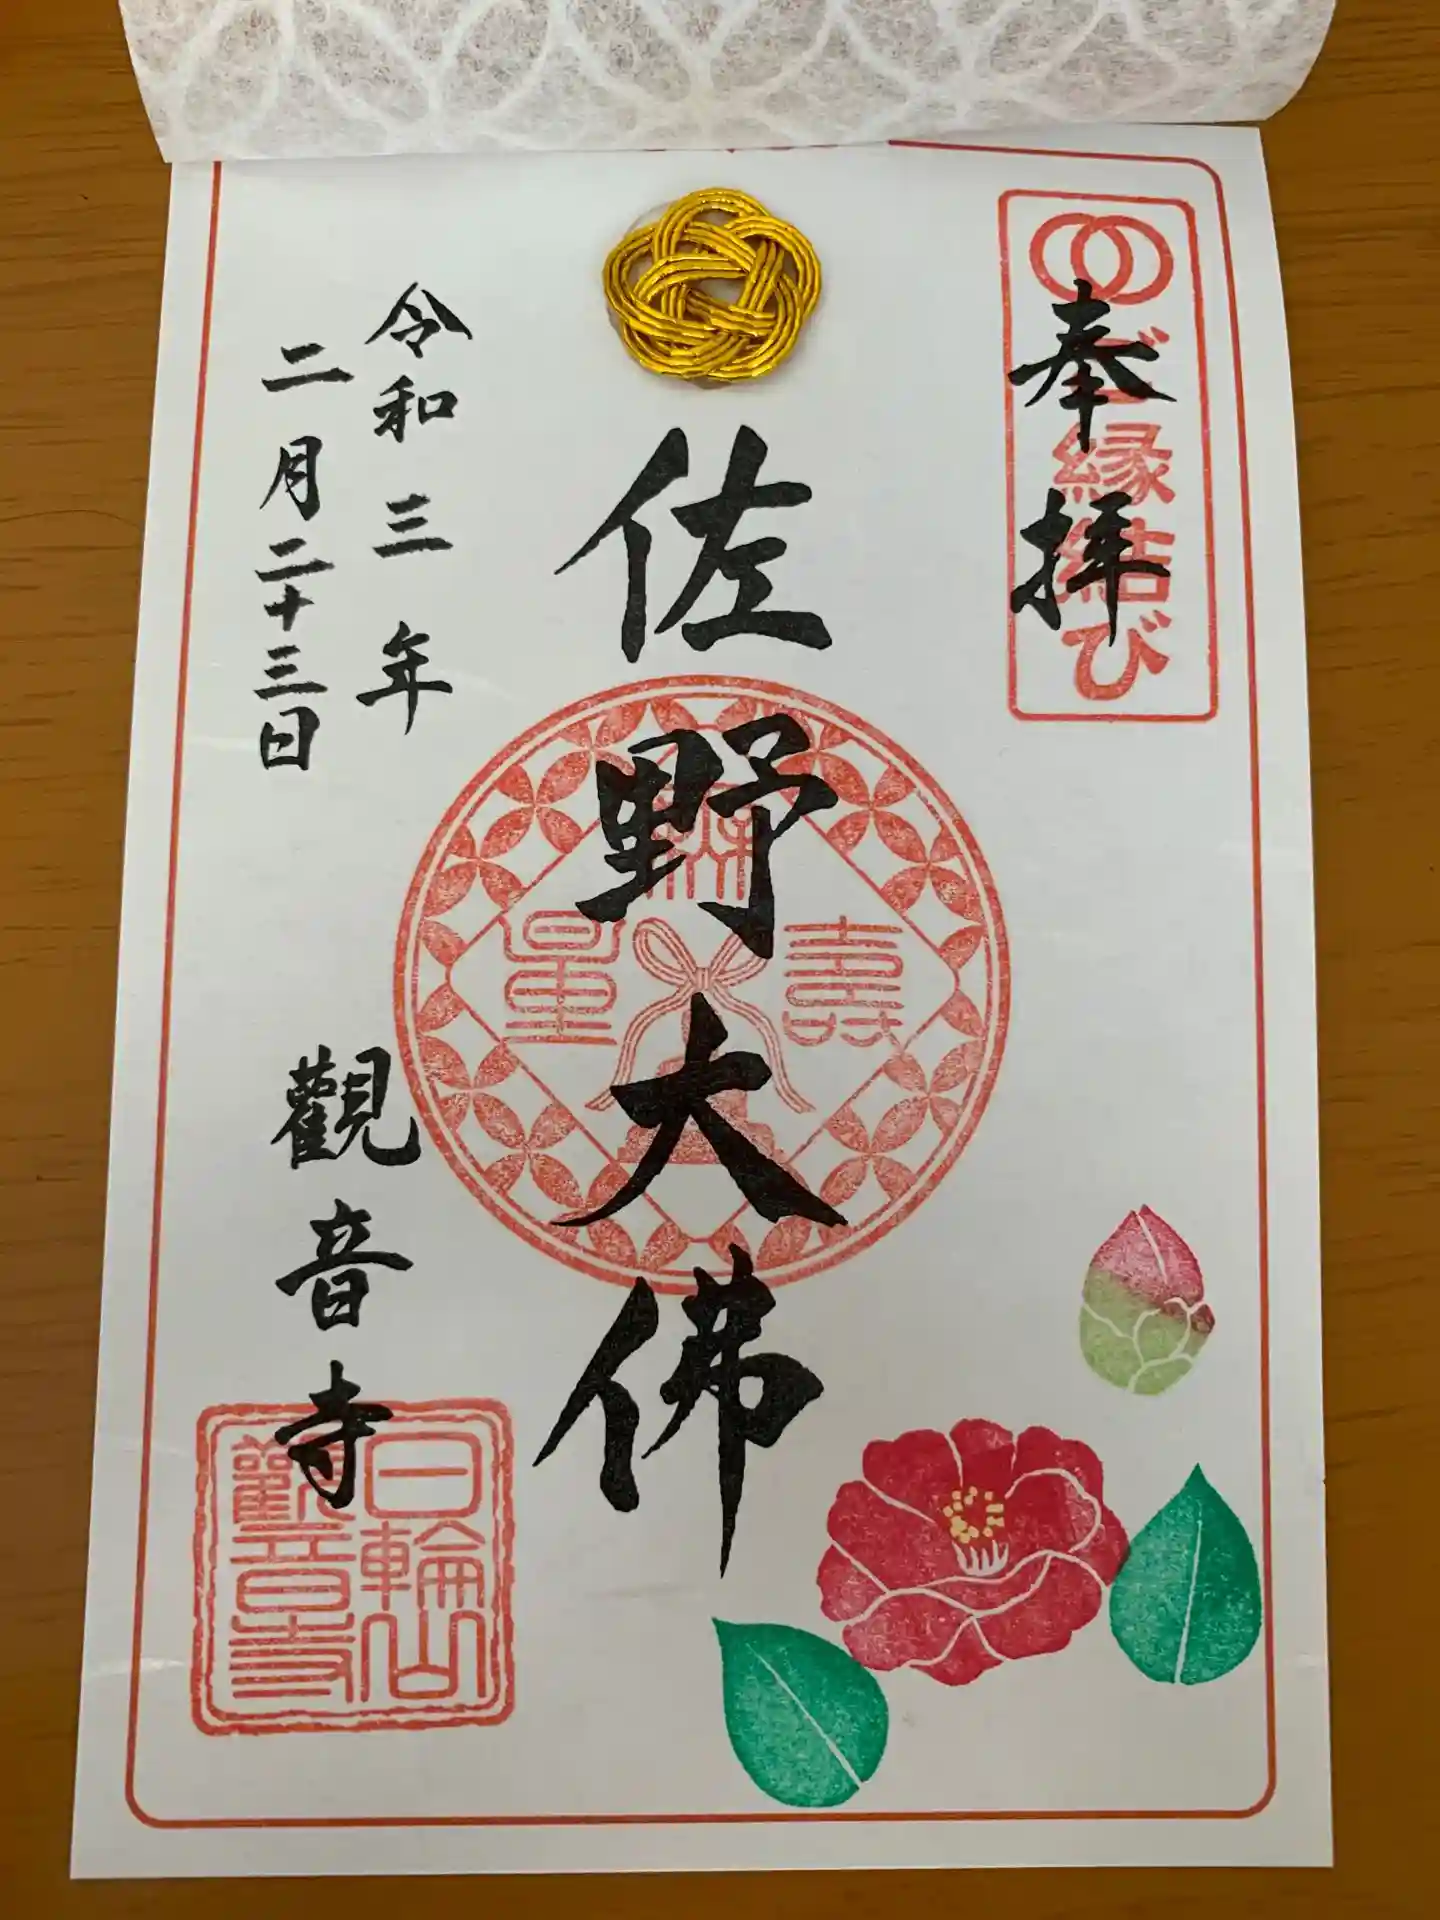 奉拝
ご縁結び
佐野大佛
無
壽
量
令和三年
二月二十三日
觀音寺
日輪山
觀音寺